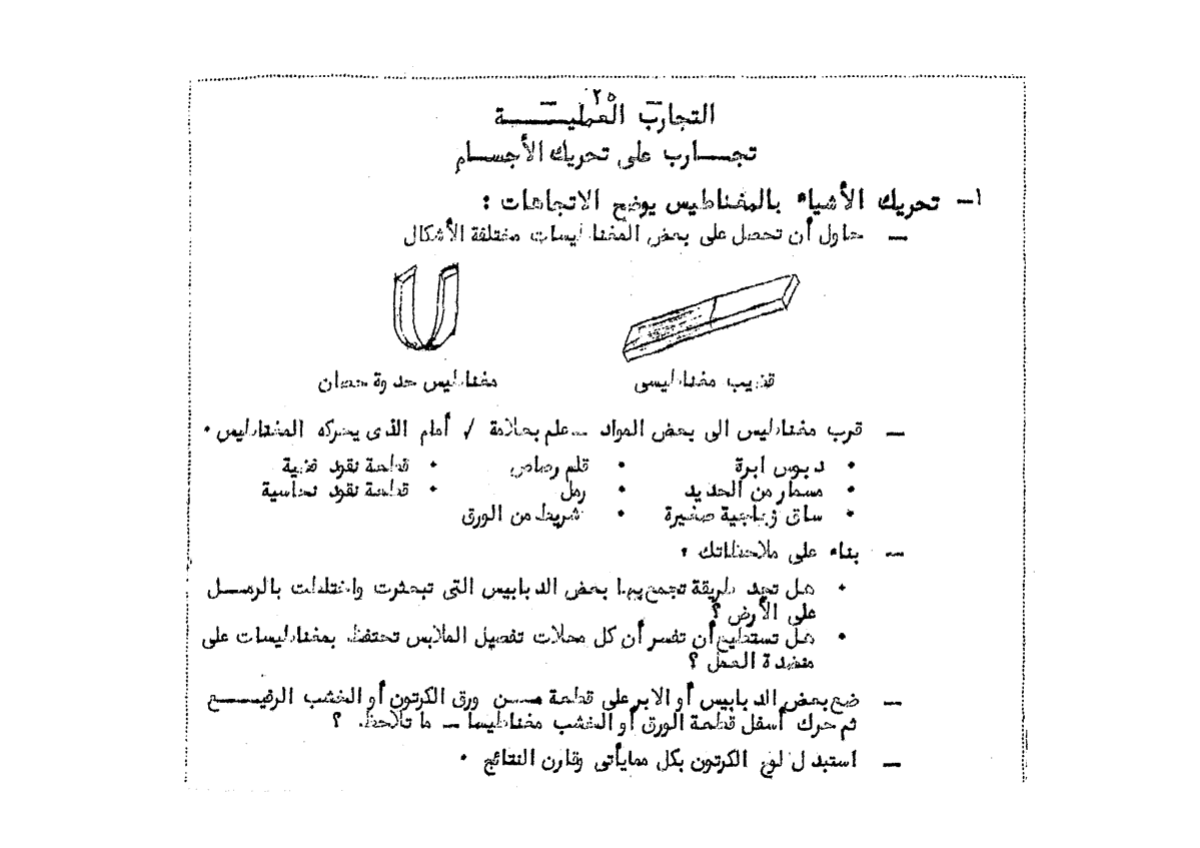 ٢٥
التجارب العملية
تجارب على تحريك الأجسام
١- تحريك الأشياء بالمغناطيس يوضح الاتجاهات :
— حاول أن تحصل على بعض المغناطيسات مختلفة الأشكال
قضيب مغناطيسى
مغناطيس حدوة حصان
— قرب مغناطيس الى بعض المواد — علم بعلامة √ أمام الذى يحركه المغناطيس •
• دبوس ابرة • قلم رصاص • قطعة نقود فضية
• مسمار من الحديد • رمل • قطعة نقود نحاسية
• ساق زجاجية صغيرة • شريط من الورق
— بناء على ملاحظاتك ،
• هل تجد طريقة تجمع بها بعض الدبابيس التى تبعثرت واختلطت بالرمل
على الأرض ؟
• هل تستطيع أن تفسر أن كل محلات تفصيل الملابس تحتفظ بمغناطيسات على
منضدة العمل ؟
— ضع بعض الدبابيس أو الابر على قطعة من ورق الكرتون أو الخشب الرفيع
ثم حرك أسفل قطعة الورق أو الخشب مغناطيسا — ما تلاحظ. ؟
— استبدل لوح الكرتون بكل ممايأتى وقارن النتائج •